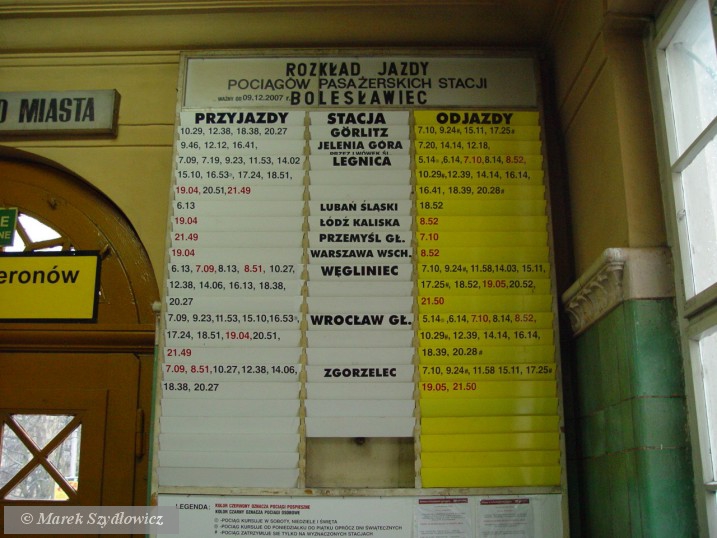 ROZKŁAD JAZDY
POCIĄGÓW PASAŻERSKICH STACJI
WAŻNY OD 09.12.2007 r. BOLESŁAWIEC
O MIASTA
PRZYJAZDY STACJA ODJAZDY
10.29, 12.38, 18.38, 20.27 GÖRLITZ 7.10, 9.24, 15.11, 17.25
9.46, 12.12, 16.41, JELENIA GÓRA 7.20, 14.14, 12.18,
PRZEZ LWÓWEK ŚL.
7.09, 7.19, 9.23, 11.53, 14.02 LEGNICA 5.14, 6.14, 7.10, 8.14, 8.52,
15.10, 16.53, 17.24, 18.51, 10.29, 12.39, 14.14, 16.14,
19.04, 20.51, 21.49 16.41, 18.39, 20.28
6.13 LUBAŃ ŚLĄSKI 18.52
19.04 ŁÓDŹ KALISKA 8.52
21.49 PRZEMYŚL GŁ. 7.10
19.04 WARSZAWA WSCH. 8.52
6.13, 7.09, 8.13, 8.51, 10.27, WĘGLINIEC 7.10, 9.24, 11.58, 14.03, 15.11,
12.38, 14.06, 16.13, 18.38, 17.25, 18.52, 19.05, 20.52,
20.27 21.50
7.09, 9.23, 11.53, 15.10, 16.53, WROCŁAW GŁ. 5.14, 6.14, 7.10, 8.14, 8.52,
17.24, 18.51, 19.04, 20.51, 10.29, 12.39, 14.14, 16.14,
21.49 18.39, 20.28
7.09, 8.51, 10.27, 12.38, 14.06, ZGORZELEC 7.10, 9.24, 11.58 15.11, 17.25
18.38, 20.27 19.05, 21.50
eronów
LEGENDA: KOLOR CZERWONY OZNACZA POCIĄGI POSPIESZNE
KOLOR CZARNY OZNACZA POCIĄGI OSOBOWE
-POCIĄG KURSUJE W SOBOTY, NIEDZIELE I ŚWIĘTA
-POCIĄG KURSUJE OD PONIEDZIAŁKU DO PIĄTKU OPRÓCZ DNI ŚWIĄTECZNYCH
-POCIĄG ZATRZYMUJE SIĘ TYLKO NA WYZNACZONYCH STACJACH
© Marek Szydłowicz